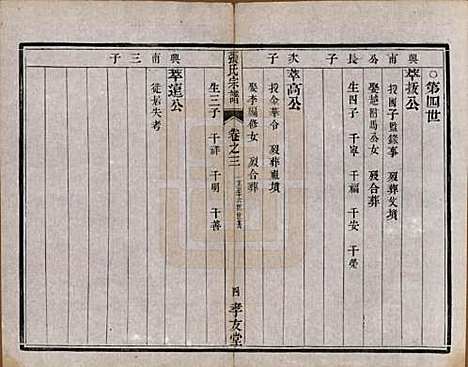 ○第四世
興南公長子
萃拔公
投國子監錄事 歿葬父墳
娶越駙馬公女 歿合葬
生四子 千寧 千福 千安 千勞
次子
萃高公
投金華令 歿葬祖墳
娶李編修女 歿合葬
生三子 千祥 千明 千善
張氏宗譜
卷之三
四
孝友堂
興南三子
萃遠公
徙居失考